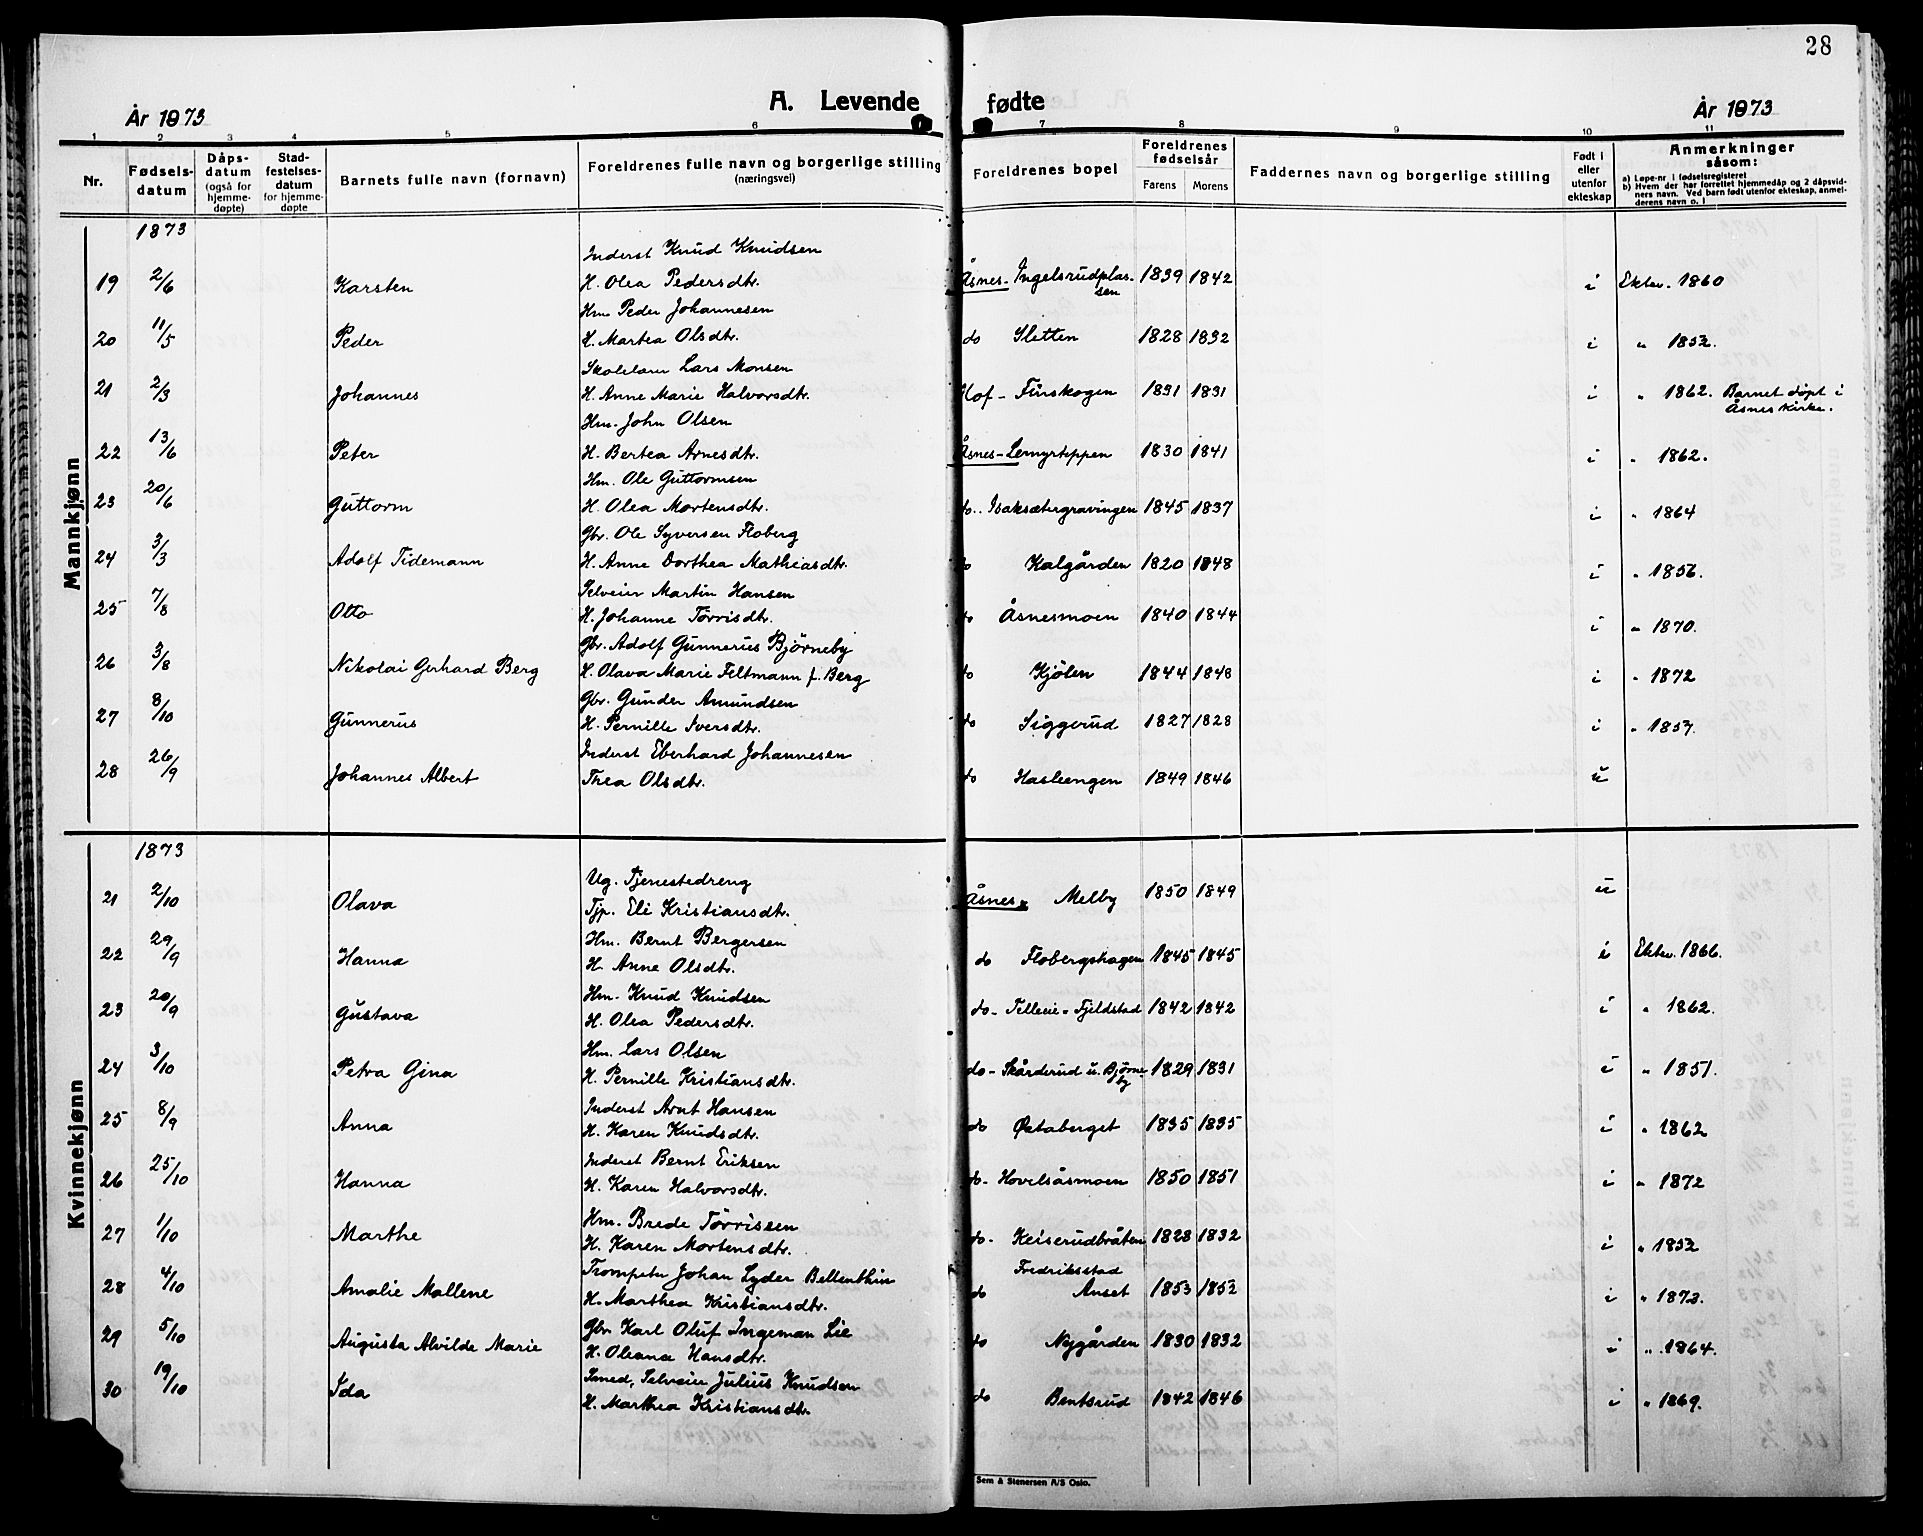 28
A. Levende fødte
År 1873
År 1873
1 2 3 4 5 6 7 8 9 10 11
Nr.
Fødselsdatum
Dåpsdatum (også for hjemmedøpte)
Stadfestelsesdatum for hjemmedøpte
Barnets fulle navn (fornavn)
Foreldrenes fulle navn og borgerlige stilling (næringsvei)
Foreldrenes bopel
Foreldrenes fødselsår
Farens Morens
Faddernes navn og borgerlige stilling
Født i eller utenfor ekteskap
Anmerkninger såsom:
a) Løpe-nr i fødselsregisteret
b) Hvem der har forrettet hjemmedåp og 2 dåpsvidners navn. Ved barn født utenfor ekteskap, anmelderens navn o. l
Mannkjønn
1873
Inderst Knud Knudsen
19 2/6 Karsten H. Olea Pedersdtr. Åsnes- Ingelsrudplassen 1839 1842 i Ektev. 1860
Hm Peder Johannesen
20 11/5 Peder H. Martea Olsdtr. do Sletten 1828 1832 i " 1852.
Skolelærer Lars Monsen
21 2/3 Johannes H. Anne Marie Halvorsdtr. Hof - Finskogen 1831 1831 i " 1862. Barnet døpt i Åsnes kirke.
Hm. John Olsen
22 13/6 Peter H. Bertea Arnesdtr. Åsnes- Lemyrteppen 1830 1841 i " 1862.
Hm. Ole Guttormsen
23 20/6 Guttorm H. Olea Mortensdtr. do.. Isaksætergravingen 1845 1837 i " 1864
Gbr. Ole Syversen Floberg
24 3/3 Adolf Tidemann H. Anne Dorthea Mathiasdtr. do Kalgården 1820 1848 i " 1856.
Selveier Martin Hansen
25 7/8 Otto H. Johanne Tørrisdtr. do Åsnesmoen 1840 1844 i " 1870.
Gbr. Adolf Gunnerius Bjørneby
26 3/8 Nikolai Gerhard Berg H. Olava Marie Feltmann f. Berg do Kjølen 1844 1848 i " 1872
Gbr. Gunder Amundsen
27 8/10 Gunnerus H. Pernille Iversdtr. do Siggerud 1827 1828 i " 1857.
Inderst Eberhard Johannesen
28 26/9 Johannes Albert Thea Olsdtr. do Haslengen 1849 1846 u
Kvinnekjønn
1873
Ug. Tjenestedreng
21 2/10 Olava Tjp. Eli Kristiansdtr. Åsnes- Melby 1850 1849 u
Hm. Bernt Bergersen
22 29/9 Hanna H. Anne Olsdtr. do Flobergshagen 1845 1845 i Ektev. 1866.
Hm. Knud Knudsen
23 20/9 Gustava H. Olea Pedersdtr. do- Telleie - Fjeldstad 1842 1842 i " 1862.
Hm. Lars Olsen
24 3/10 Petra Gina H. Pernille Kristiansdtr. do- Skårderud u. Bjørneby 1829 1831 i " 1851.
Inderst Arnt Hansen
25 8/9 Anna H. Karen Knudsdtr. do Østaberget 1835 1835 i " 1862
Inderst Bernt Eriksen
26 25/10 Hanna H. Karen Halvorsdtr. do- Hovelsåsmoen 1850 1851 i " 1872
Hm. Brede Tørrissen
27 1/10 Marthe H. Karen Mortensdtr. do- Keiserudbråten 1828 1832 i " 1852
Trompeter Johan Lyder Bellenthin Fredriksstad
28 4/10 Amalie Mallene H. Marthea Kristiansdtr. do Anset 1853 1852 i " 1873.
Gbr Karl Oluf Ingeman Lie
29 5/10 Augusta Alvilde Marie H. Oleana Hansdtr. do Nygården 1830 1832 i " 1864.
Smed, Selveier Julius Knudsen
30 19/10 Ida H. Marthea Kristiansdtr. do Bentsrud 1842 1846 i " 1869.
Sem & Stenersen A/S Oslo.